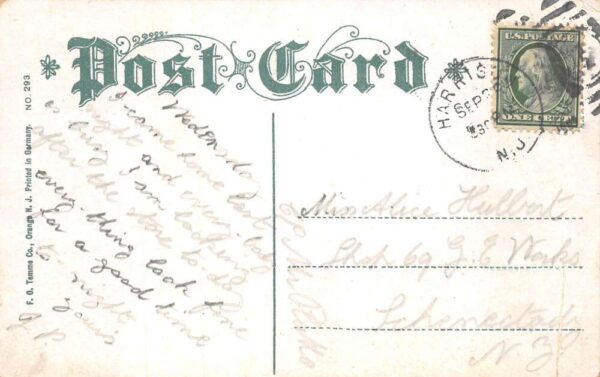 Post Card
U.S. POSTAGE
ONE CENT
HARRISON
SEP
N.J.
NO. 293
F. O. Temme Co., Orange N. J. Printed in Germany.
Wednesday
I came home last
night and every body
is busy I am looking
after the store to-do
every thing look fine
for a good times
to night
yours
J. P.
Miss Alice Hulbert
Shop 69 G. E Works
Schenectady
N. Y.